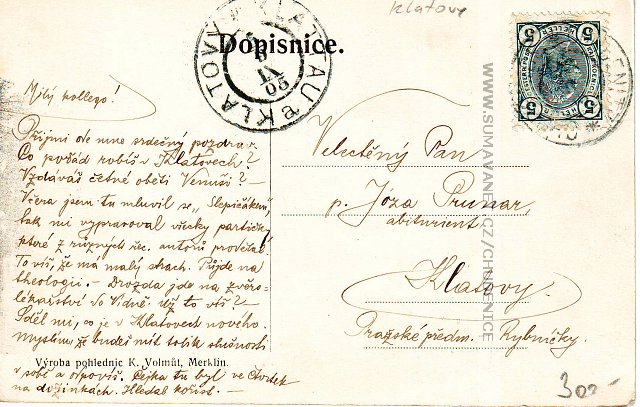 Klatovy
Dopisnice.
KLATOVY KLATTAU
IX 05
5 5
HELLER
5 5
WWW.SUMAVANET.CZ/CHUDENICE
Milý kollego!
Přijmi ode mne srdečný pozdrav.
Co pořád robíš v Klatovech?
Vzdáváš četné oběti Venuši? –
Včera jsem tu mluvil se „Slepičákem“,
tak mi vypravoval všecky partičky,
které z různých autorů prodělal.
To víš, že má malý strach. Půjde na
theologii. – Drozda jde na zvěro-
lékařství do Vídně. Už to víš? –
Sděl mi, co je v Klatovech nového.
Myslím, že budeš mít tolik slušnosti
v sobě a odpovíš. Čejka tu byl ve čtvrtek
na dožínkách. Hledal kořist. –
Velectěný Pan
p. Józa Prunar,
abiturient
Klatovy.
Pražské předm. Rybníčky.
Výroba pohlednic K. Volmůt, Merklín.
300,-